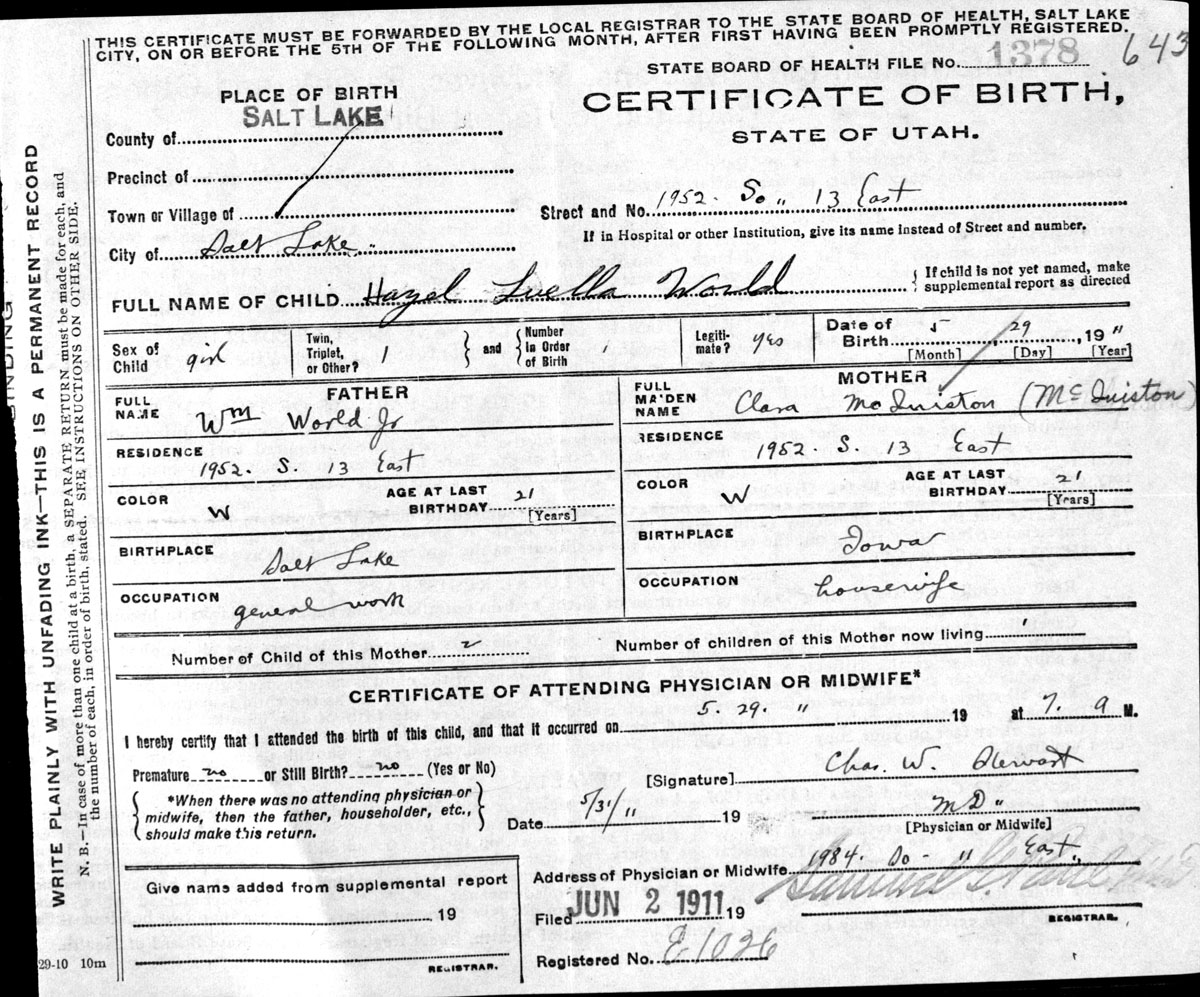 THIS CERTIFICATE MUST BE FORWARDED BY THE LOCAL REGISTRAR TO THE STATE BOARD OF HEALTH, SALT LAKE
CITY, ON OR BEFORE THE 5TH OF THE FOLLOWING MONTH, AFTER FIRST HAVING BEEN PROMPTLY REGISTERED.
STATE BOARD OF HEALTH FILE No. 1378 643
PLACE OF BIRTH
CERTIFICATE OF BIRTH,
STATE OF UTAH.
County of SALT LAKE
Precinct of
Town or Village of
Street and No. 1952. So " 13 East
If in Hospital or other Institution, give its name instead of Street and number.
City of Salt Lake "
FULL NAME OF CHILD Hazel Luella World
{ If child is not yet named, make
supplemental report as directed
Sex of Child girl
Twin, Triplet, or Other? 1
and
Number in Order of Birth 1
Legiti- mate? yes
Date of Birth 5 29, 19 11
[Month] [Day] [Year]
FATHER
FULL NAME Wm World Jr
MOTHER
FULL MAIDEN NAME Clara McQuiston (McQuiston)
RESIDENCE 1952. S. 13 East
RESIDENCE 1952. S. 13 East
COLOR W
AGE AT LAST BIRTHDAY 21
[Years]
COLOR W
AGE AT LAST BIRTHDAY 21
[Years]
BIRTHPLACE Salt Lake
BIRTHPLACE Iowa
OCCUPATION general work
OCCUPATION housewife
Number of Child of this Mother 2
Number of children of this Mother now living 1
CERTIFICATE OF ATTENDING PHYSICIAN OR MIDWIFE*
I hereby certify that I attended the birth of this child, and that it occurred on 5. 29. 11 19 at 7. a M.
Premature no or Still Birth? no (Yes or No)
[Signature] Chas. W. Stewart
{ *When there was no attending physician or
midwife, then the father, householder, etc.,
should make this return. }
Date 5/31/11 19
MD "
[Physician or Midwife]
Address of Physician or Midwife 1984. So - 11 East "
Give name added from supplemental report
19
REGISTRAR.
Filed JUN 2 1911 19
REGISTRAR.
Registered No. E1036
29-10 10m
WRITE PLAINLY WITH UNFADING INK—THIS IS A PERMANENT RECORD
N. B.—In case of more than one child at a birth, a SEPARATE RETURN must be made for each, and
the number of each, in order of birth, stated. SEE INSTRUCTIONS ON OTHER SIDE.